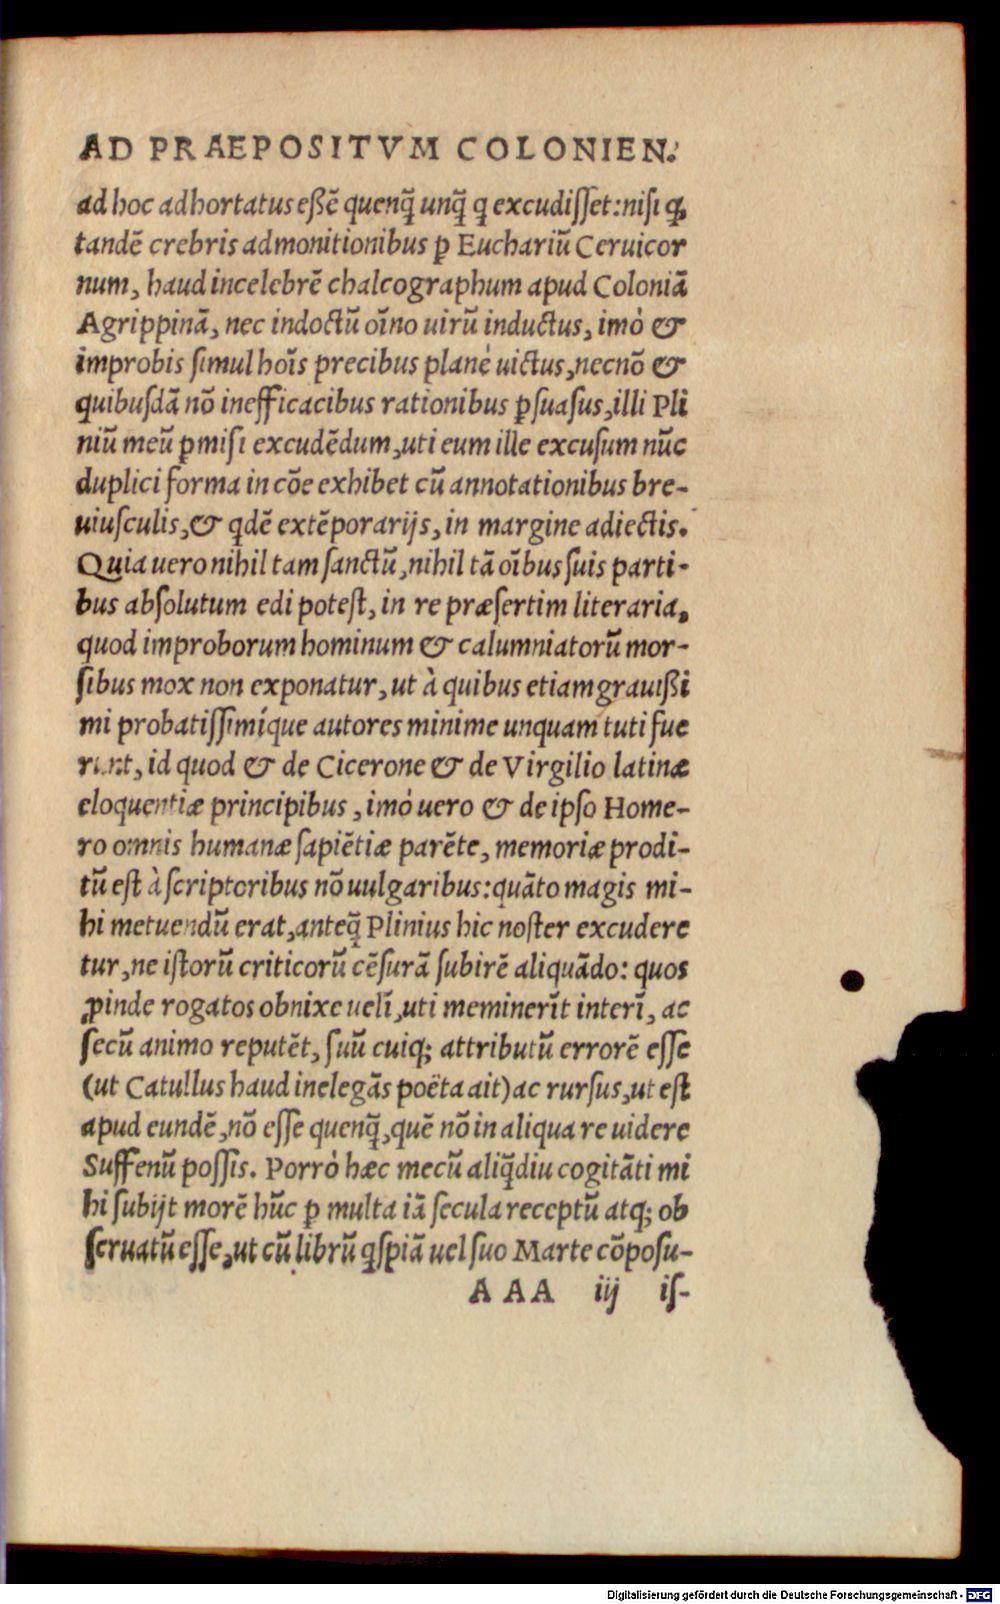 AD PRAEPOSITVM COLONIEN.
ad hoc adhortatus eßē quenq̄ unq̄ q excudisset:nisi q,
tandē crebris admonitionibus ꝑ Euchariū Ceruicor
num, haud incelebrē chalcographum apud Coloniā
Agrippinā, nec indoctū oīno uirū inductus, imò &
improbis simul hoīs precibus planè uictus, necnō &
quibusdā nō inefficacibus rationibus ꝑsuasus, illi Pli
niū meū ꝑmisi excudēdum, uti eum ille excusum nūc
duplici forma in cōe exhibet cū annotationibus bre-
uiusculis, & qdē extēporarijs, in margine adiectis.
Quia uero nihil tam sanctū, nihil tā oībus suis parti-
bus absolutum edi potest, in re præsertim literaria,
quod improborum hominum & calumniatorū mor-
sibus mox non exponatur, ut à quibus etiam grauißi
mi probatissimíque autores minime unquam tuti fue
runt, id quod & de Cicerone & de Virgilio latinæ
eloquentiæ principibus, imò uero & de ipso Home-
ro omnis humanæ sapiētiæ parēte, memoriæ prodi-
tū est à scriptoribus nō uulgaribus: quāto magis mi-
hi metuendū erat, anteq̄ Plinius hic noster excudere
tur, ne istorū criticorū cēsurā subirē aliquādo: quos
ꝓinde rogatos obnixe uelī, uti meminerīt interī, ac
secū animo reputēt, suū cuiq; attributū errorē esse
(ut Catullus haud inelegās poëta ait) ac rursus, ut est
apud eundē, nō esse quenq̄, quē nō in aliqua re uidere
Suffenū possis. Porrò hæc mecū aliq̄diu cogitāti mi
hi subijt morē hūc ꝑ multa iā secula receptū atq; ob
seruatū esse, ut cū librū qspiā uel suo Marte cōposu-
AAA iij is-
Digitalisierung gefördert durch die Deutsche Forschungsgemeinschaft - DFG